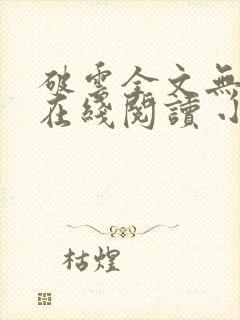 破雲全文無
在綫閱讀
枯煌